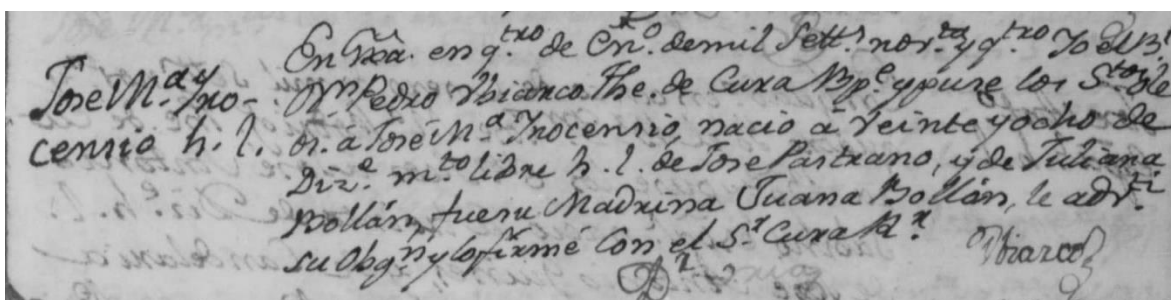 Jose M.a Yno-
censio h. l.
En Tixa. en q.tro de En.o de mil Sett.s nov.ta y q.tro Yo el B.r
D.n Pedro Ubiarco The. de Cura Bp.e y puse los S.tos ole
os. á José M.a Ynocensio, nacio á veinte y ocho de
Diz.e m.to libre h. l. de Jose Pastrano, y de Juliana
Bollán, fue su Madrina Juana Bollán, le adv.ti
su Obg.n y lo firmé con el S.r Cura R.r
Ubiarco